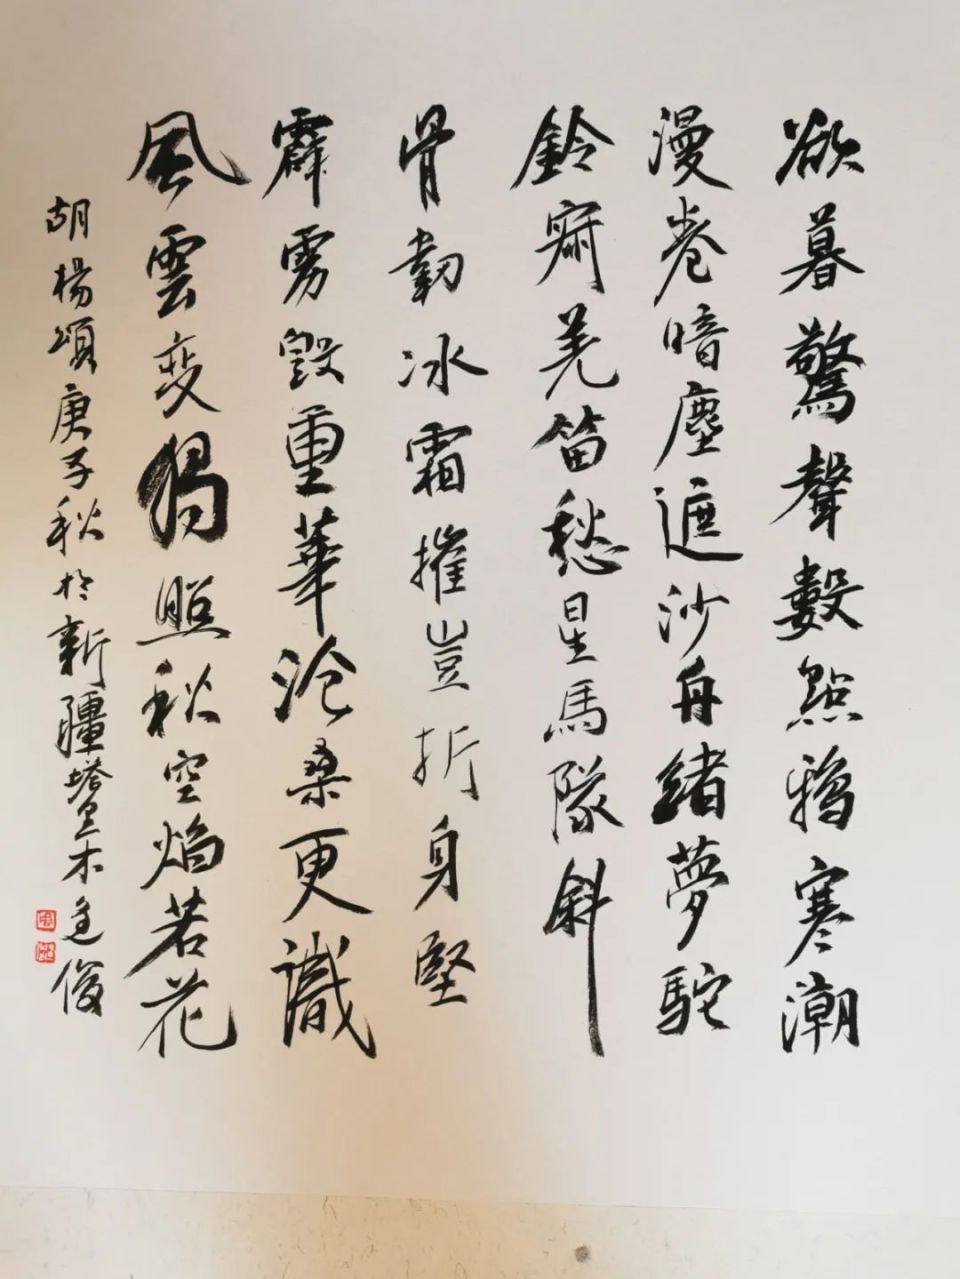 欲暮驚聲數點鴉寒潮
漫卷暗塵遮沙舟緒夢駝
鈴寂羌笛愁星馬隊斜
骨韌冰霜摧豈折身堅
霹雳毀重華滄桑更識
風雲变獨照秋空焰若花
胡楊頌庚子秋於新疆塔里木連俊